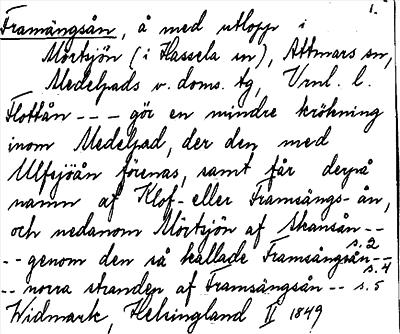 1.
Framängsån, å med utlopp i
Mörtsjön (i Hassela sn), Attmars sn,
Medelpads v. doms. tg, Vrnl. l.
Flottån --- gör en mindre krökning
inom Medelpad, der den med
Ulfsjöån förenas, samt får derpå
namn af Klof- eller Framsängs-ån,
och nedanom Mörtsjön af Stransån--
--genom den så kallade Framsängsån-- s.2
--norra stranden af Framsängsån-- s.5 s.4
Widmark, Helsingland II 1849